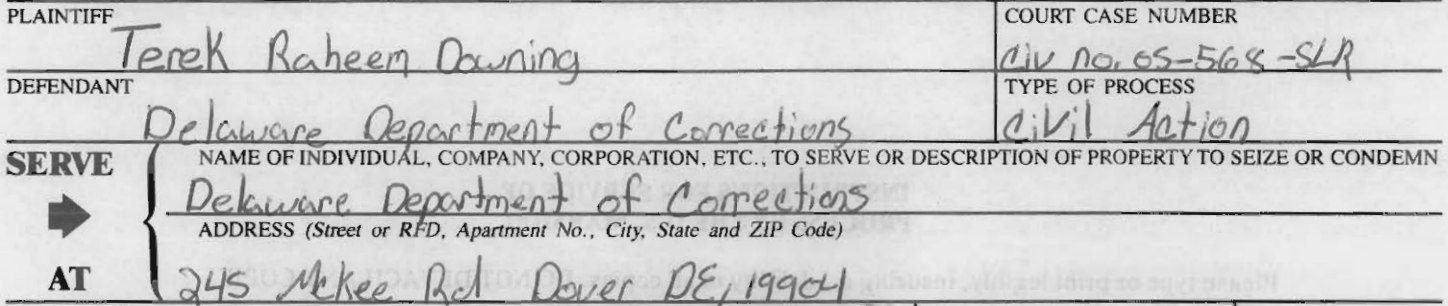 PLAINTIFF
Terek Raheem Downing
COURT CASE NUMBER
Civ no. 05-568-SLR
DEFENDANT
Delaware Department of Corrections
TYPE OF PROCESS
Civil Action
SERVE
NAME OF INDIVIDUAL, COMPANY, CORPORATION, ETC., TO SERVE OR DESCRIPTION OF PROPERTY TO SEIZE OR CONDEMN
Delaware Department of Corrections
ADDRESS (Street or RFD, Apartment No., City, State and ZIP Code)
AT
245 McKee Rd Dover DE, 19904